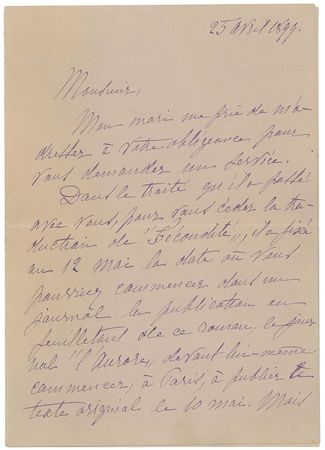 25 avril 1899.
Monsieur,
Mon mari me prie de m'a-
dresser à votre obligeance pour
vous demander un service.
Dans le traité qu'il a passé
avec vous, pour vous céder la tra-
duction de "Fécondité", il a fixé
au 12 Mai la date où vous
pourriez commencer dans un
journal la publication en
feuilletons de ce roman, le jour-
nal "l'Aurore" devant lui-même
commencer, à Paris, à publier le
texte original le 10 mai. Mais